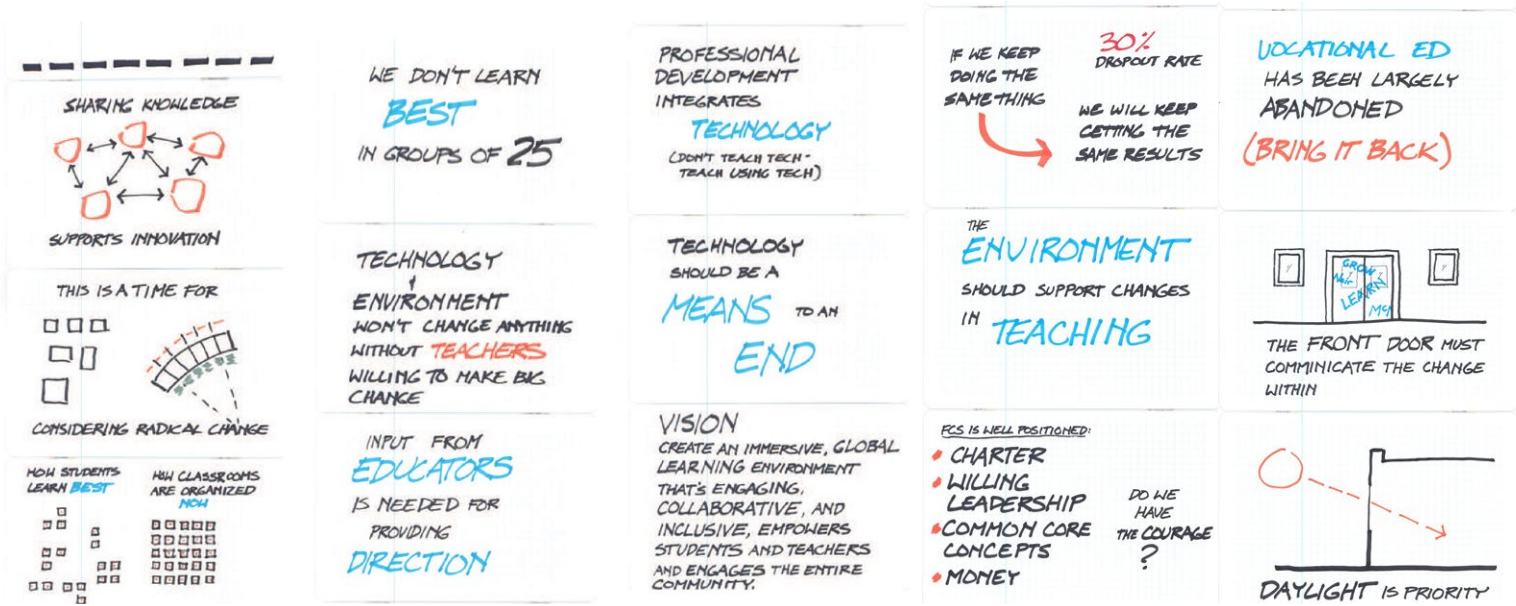 SHARING KNOWLEDGE
SUPPORTS INNOVATION
THIS IS A TIME FOR
CONSIDERING RADICAL CHANGE
HOW STUDENTS
LEARN BEST
HOW CLASSROOMS
ARE ORGANIZED
NOW
WE DON'T LEARN
BEST
IN GROUPS OF 25
TECHNOLOGY
&
ENVIRONMENT
WON'T CHANGE ANYTHING
WITHOUT TEACHERS
WILLING TO MAKE BIG
CHANGE
INPUT FROM
EDUCATORS
IS NEEDED FOR
PROVIDING
DIRECTION
PROFESSIONAL
DEVELOPMENT
INTEGRATES
TECHNOLOGY
(DON'T TEACH TECH -
TEACH USING TECH)
TECHNOLOGY
SHOULD BE A
MEANS TO AN
END
VISION
CREATE AN IMMERSIVE, GLOBAL
LEARNING ENVIRONMENT
THAT'S ENGAGING,
COLLABORATIVE, AND
INCLUSIVE, EMPOWERS
STUDENTS AND TEACHERS
AND ENGAGES THE ENTIRE
COMMUNITY.
IF WE KEEP
DOING THE
SAME THING
30%
DROPOUT RATE
WE WILL KEEP
GETTING THE
SAME RESULTS
THE
ENVIRONMENT
SHOULD SUPPORT CHANGES
IN TEACHING
FCS IS WELL POSITIONED:
CHARTER
WILLING
LEADERSHIP
COMMON CORE
CONCEPTS
MONEY
DO WE
HAVE
THE COURAGE
?
VOCATIONAL ED
HAS BEEN LARGELY
ABANDONED
(BRING IT BACK)
GROW
LEARN
THE FRONT DOOR MUST
COMMINICATE THE CHANGE
WITHIN
DAYLIGHT IS PRIORITY